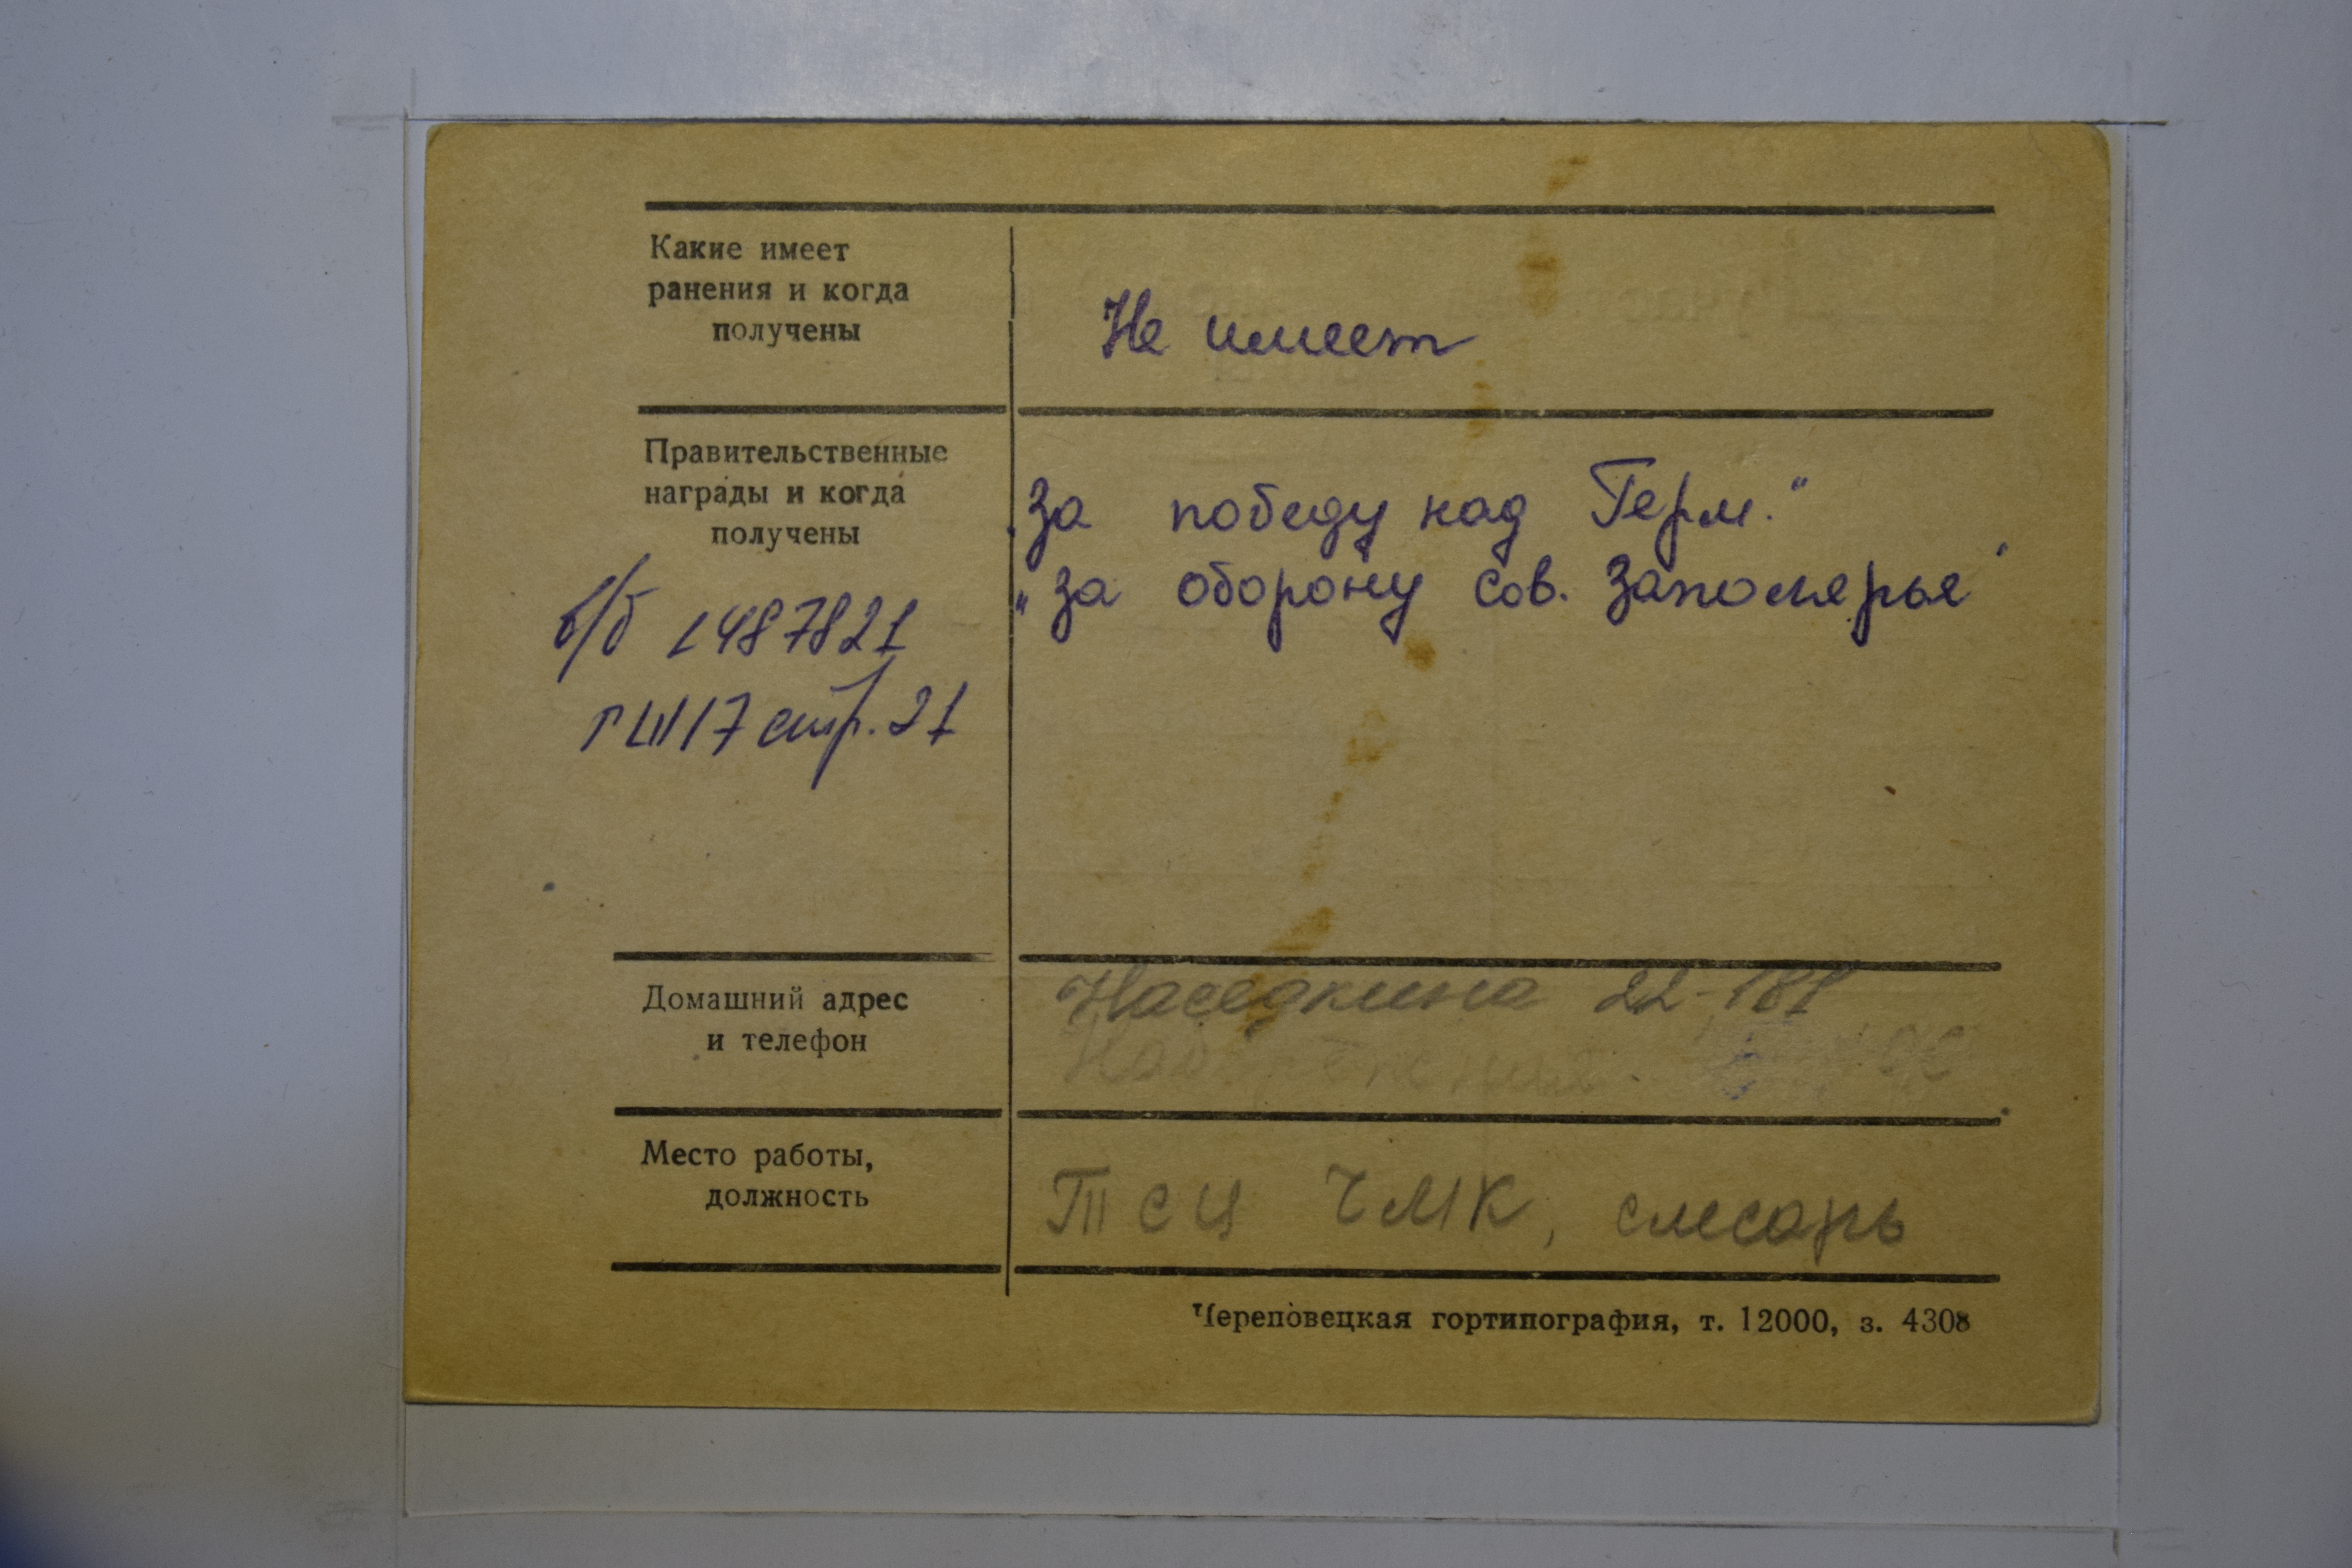 Какие имеет
ранения и когда
получены
Не имеет
Правительственные
награды и когда
получены
„За победу над Герм.“
„За оборону Сов. Заполярья“
в/б 1487821
ГШ 17 стр. 21
Домашний адрес
и телефон
Наседкина 22-181
Место работы,
должность
ТСЦ ЧМК, слесарь
Череповецкая гортипография, т. 12000, з. 4308